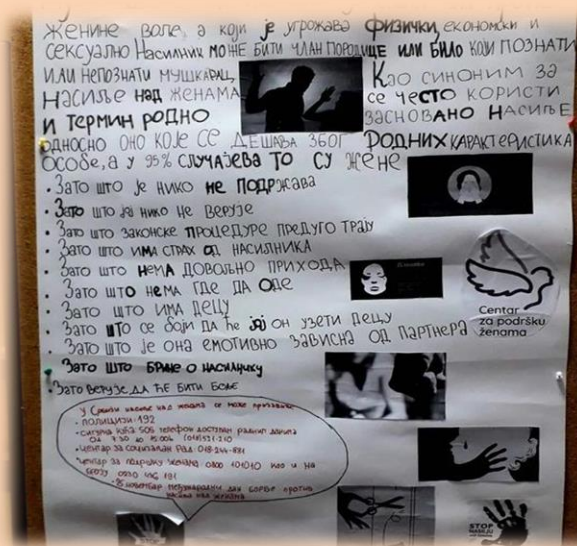 женине воље, а који је угрожава физички, економски и
сексуално Насилник може бити члан породице или било који познати
или непознати мушкарац
Као синоним за
насиље над женама
се често користи
и термин родно
засновано насиље
односно оно које се дешава због родних карактеристика
особе, а у 95% случајева то су жене
• Зато што је нико не подржава
• Зато што јој нико не верује
• Зато што законске процедуре предуго трају
• Зато што има страх од насилника
• Зато што нема довољно прихода
• Зато што нема где да оде
• Зато што има децу
• Зато што се боји да ће јој он узети децу
• Зато што је она емотивно зависна од партнера
• Зато што брине о насилнику
• Зато верује да ће бити боље
Centar
za podršku
ženama
у насиље над женама се може
- полицији: 192
сигурна кућа SOS телефон доступан
- Центар за социјални рад:
Центар за подршку женама 0800 101010 као и на
међународни дан борбе против
насиља над женама
STOP